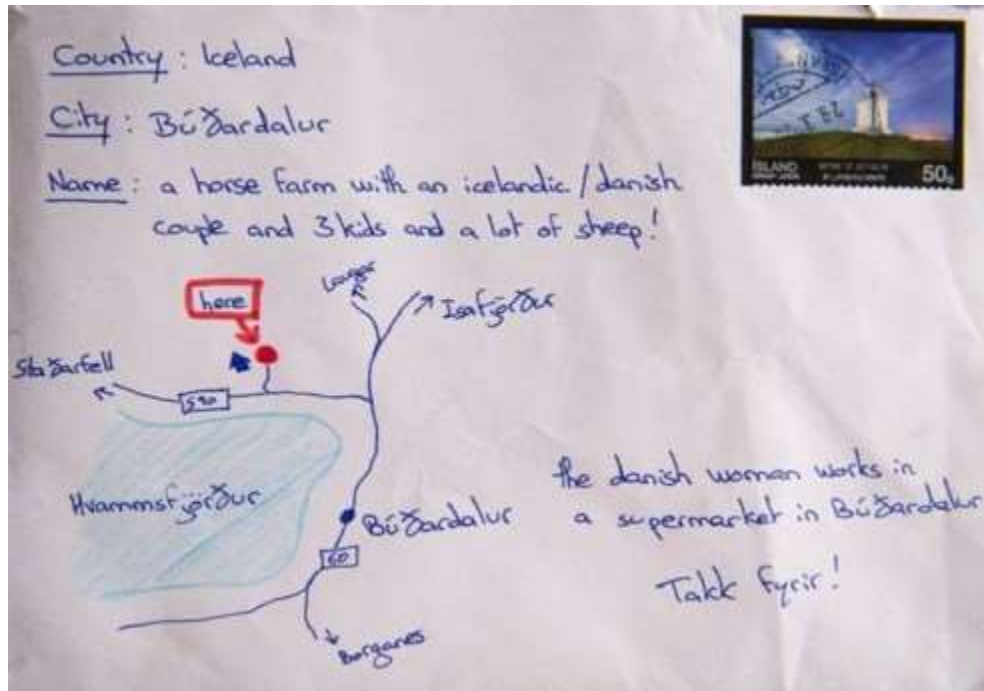 Country : Iceland
City : Búðardalur
Name : a horse farm with an icelandic / danish
couple and 3 kids and a lot of sheep!
here
Laugar
Isafjörður
Staðarfell
590
Hvammsfjörður
Búðardalur
60
Borganes
the danish woman works in
a supermarket in Búðardalur
Takk fyrir!
ÍSLAND
50g